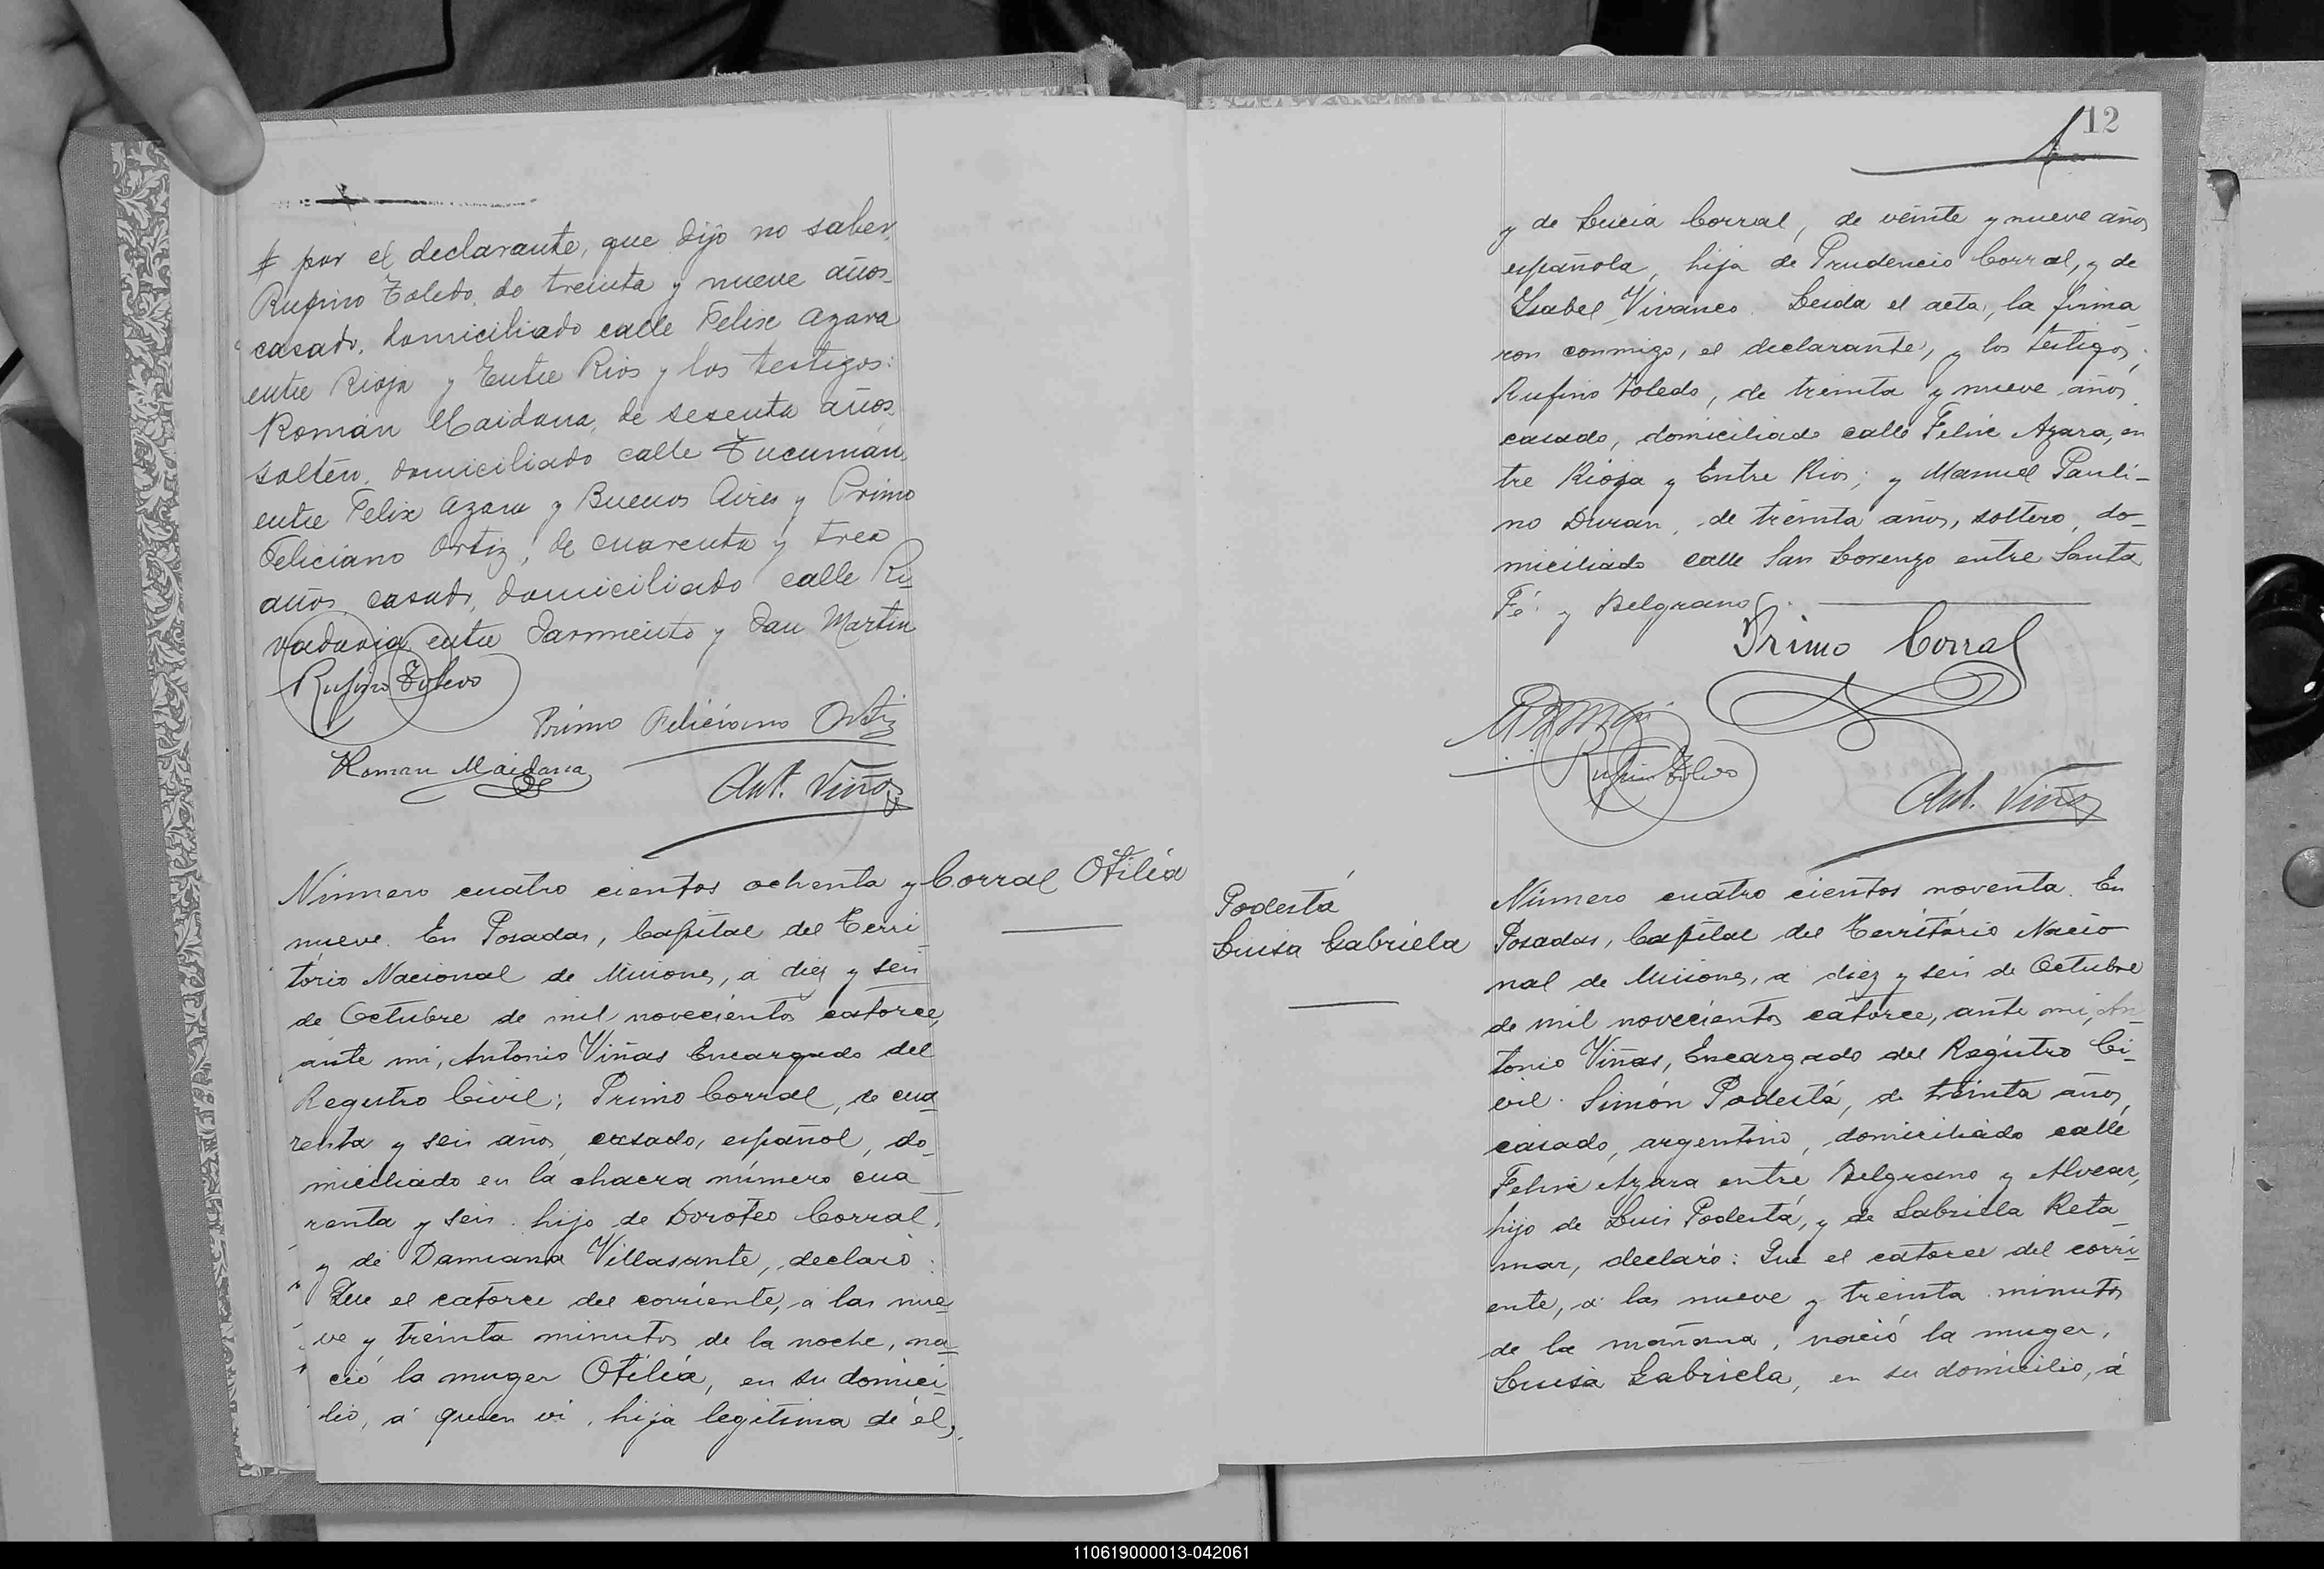 por el declarante, que dijo no saber,
Rufino Toledo, de treinta y nueve años
casado, domiciliado calle Felix Azara
entre Rioja y Entre Rios y los testigos:
Román Maidana, de sesenta años
soltero, domiciliado calle Tucumán,
entre Felix Azara y Buenos Aires y Primo
Feliciano Ortiz, de cuarenta y tres
años, casado, domiciliado calle Ri-
vadavia entre Sarmiento y San Martin
Rufino Toledo
Primo Feliciano Ortiz
Roman Maidana
Ant. Viñas
Número cuatro cientos ochenta y
Corral Otilia
nueve. En Posadas, Capital del Terri-
tório Nacional de Misiones, a diez y seis
de Octubre de mil novecientos catorce,
ante mi, Antonio Viñas Encargado del
Registro Civil; Primo Corral, de cua-
renta y seis años, casado, español, do-
miciliado en la chacra número cua-
renta y seis, hijo de Doroteo Corral,
y de Damiana Villasante, declaró:
Que el catorce del corriente, a las nue-
ve y treinta minutos de la noche, na-
ció la muger Otilia, en su domici-
lio, á quien vi, hija legitima de él,
12
y de Lucia Corral, de veinte y nueve años
española, hija de Prudencio Corral, y de
Isabel Vivanco. Leida el acta, la firma-
ron conmigo, el declarante, y los testigos,
Rufino Toledo, de treinta y nueve años
casado, domiciliado calle Felix Azara, en-
tre Rioja y Entre Rios; y Manuel Pauli-
no Duran, de treinta años, soltero, do-
miciliado calle San Lorenzo entre Santa
Fé y Belgrano.
Primo Corral
Rufino Toledo
Ant. Viñas
Podestá
Luisa Gabriela
Número cuatro cientos noventa. En
Posadas, Capital del Território Nacio-
nal de Misiones, a diez y seis de Octubre
de mil novecientos catorce, ante mi, An-
tonio Viñas, Encargado del Registro Ci-
vil. Simón Podestá, de treinta años,
casado, argentino, domiciliado calle
Felix Azara entre Belgrano y Alvear,
hijo de Luis Podestá, y de Gabriela Reta-
mar, declaró: Que el catorce del corri-
ente, a las nueve y treinta minutos
de la mañana, nació la muger,
Luisa Gabriela, en su domicilio, á
110619000013-042061